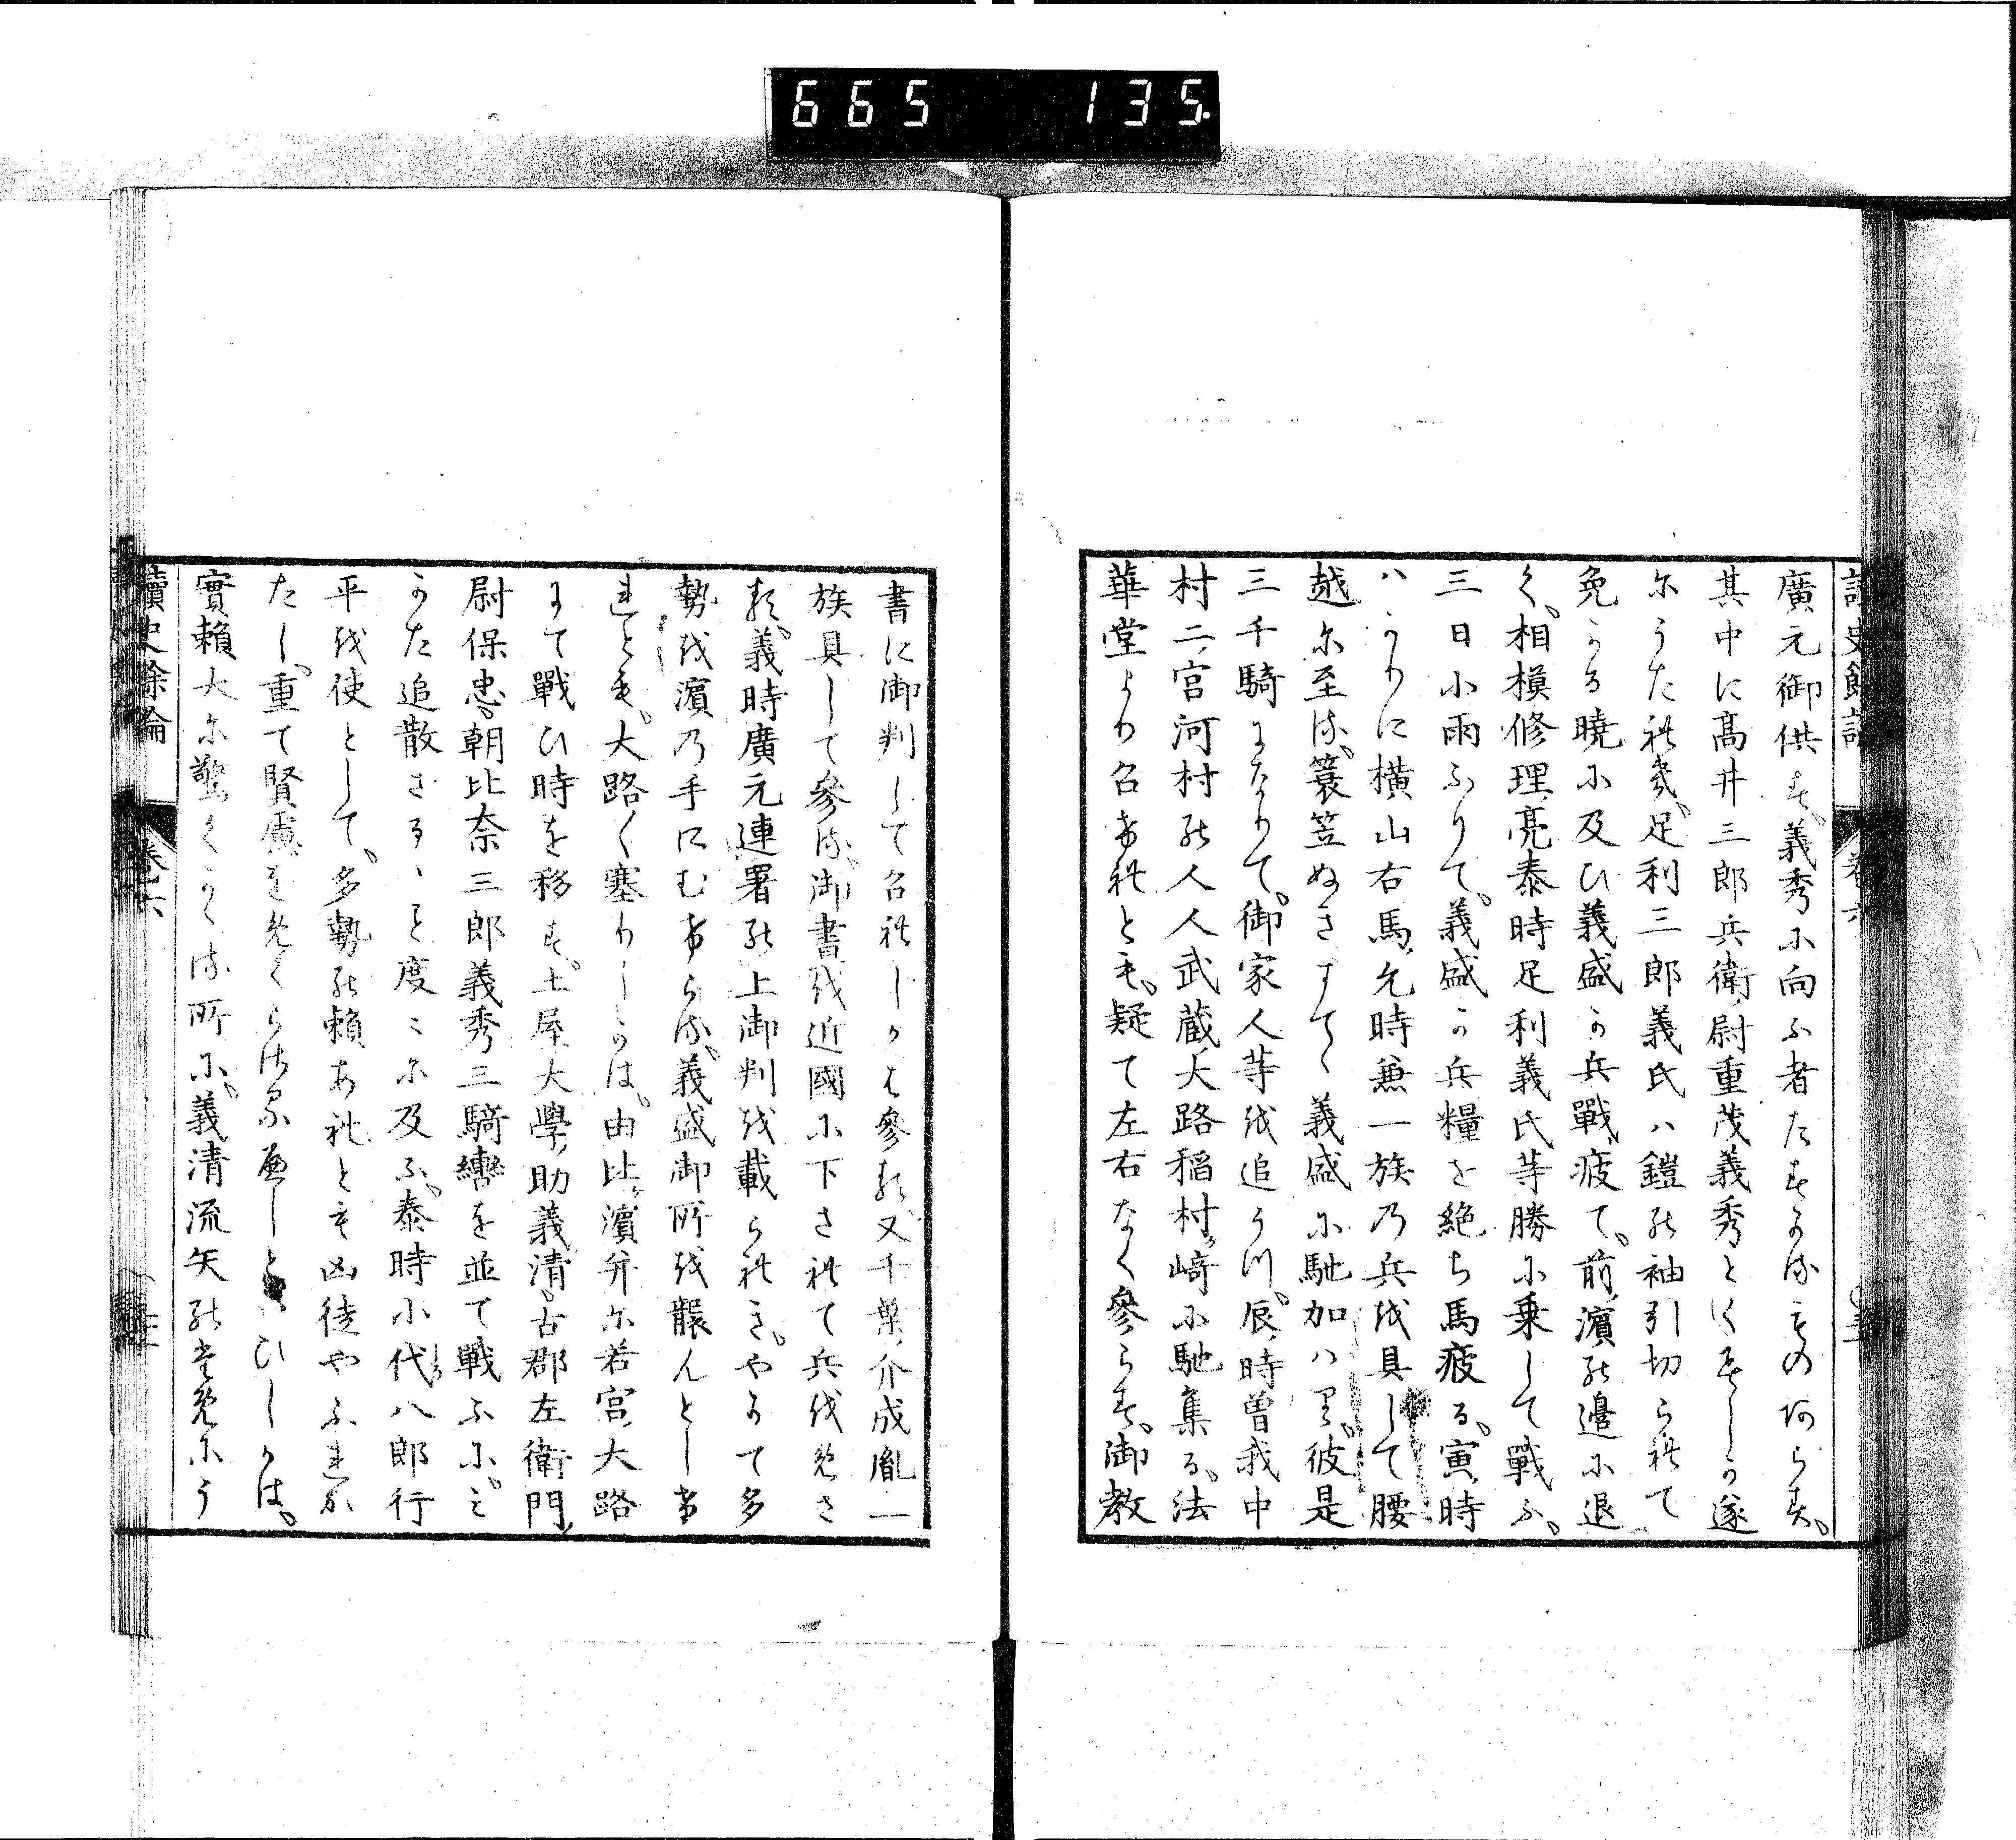 665 135.
讀史餘論 卷六
廣元御供す、義秀に向ふ者たすかるものあらす、
其中に髙井三郎兵衛、尉重茂義秀とくみしか遂
にうたれき、足利三郎義氏ハ鎧の袖引切られて
免かる暁に及ひ義盛か兵戰、疲て、前、濱の邊に退
く、相模修理、亮泰時足利義氏等勝に乗して戰ふ、
三日小雨ふりて、義盛か兵糧を絶ち馬疲る、寅、時
ハかりに横山右馬、允時兼一族の兵を具して腰
越に至る、簑笠ぬきすてゝ義盛に馳加ハる、彼是
三千騎になりて、御家人等を追うつ、辰、時曽我中
村二、宮河村の人人武蔵、大路稲村、﨑に馳集る、法
華堂より召けれとも、疑て左右なく參らす、御教
書に御判して召れしかは參る、又千葉、介成胤一
族具して參る、御書を近國に下されて兵をめさ
る、義時廣元連署の上御判を載られき、やかて多
勢を濱の手にむけらる、義盛御所を襲んとしけ
れとも、大路〱塞りしかは、由比、濱并に若宮、大路
にて戰ひ時を移す、土屋大學、助義清、古郡左衛門、
尉保忠、朝比奈三郎義秀三騎轡を並て戰ふに、み
かた追散さるゝこと度〻に及ふ、泰時小代八郎行
平を使として、多勢の頼あれとも凶徒やふれか
たし、重て賢慮をめくらさるへしといひしかは、
實頼大に驚く、かゝる所に、義清流矢の為めにう
讀史餘論 卷六